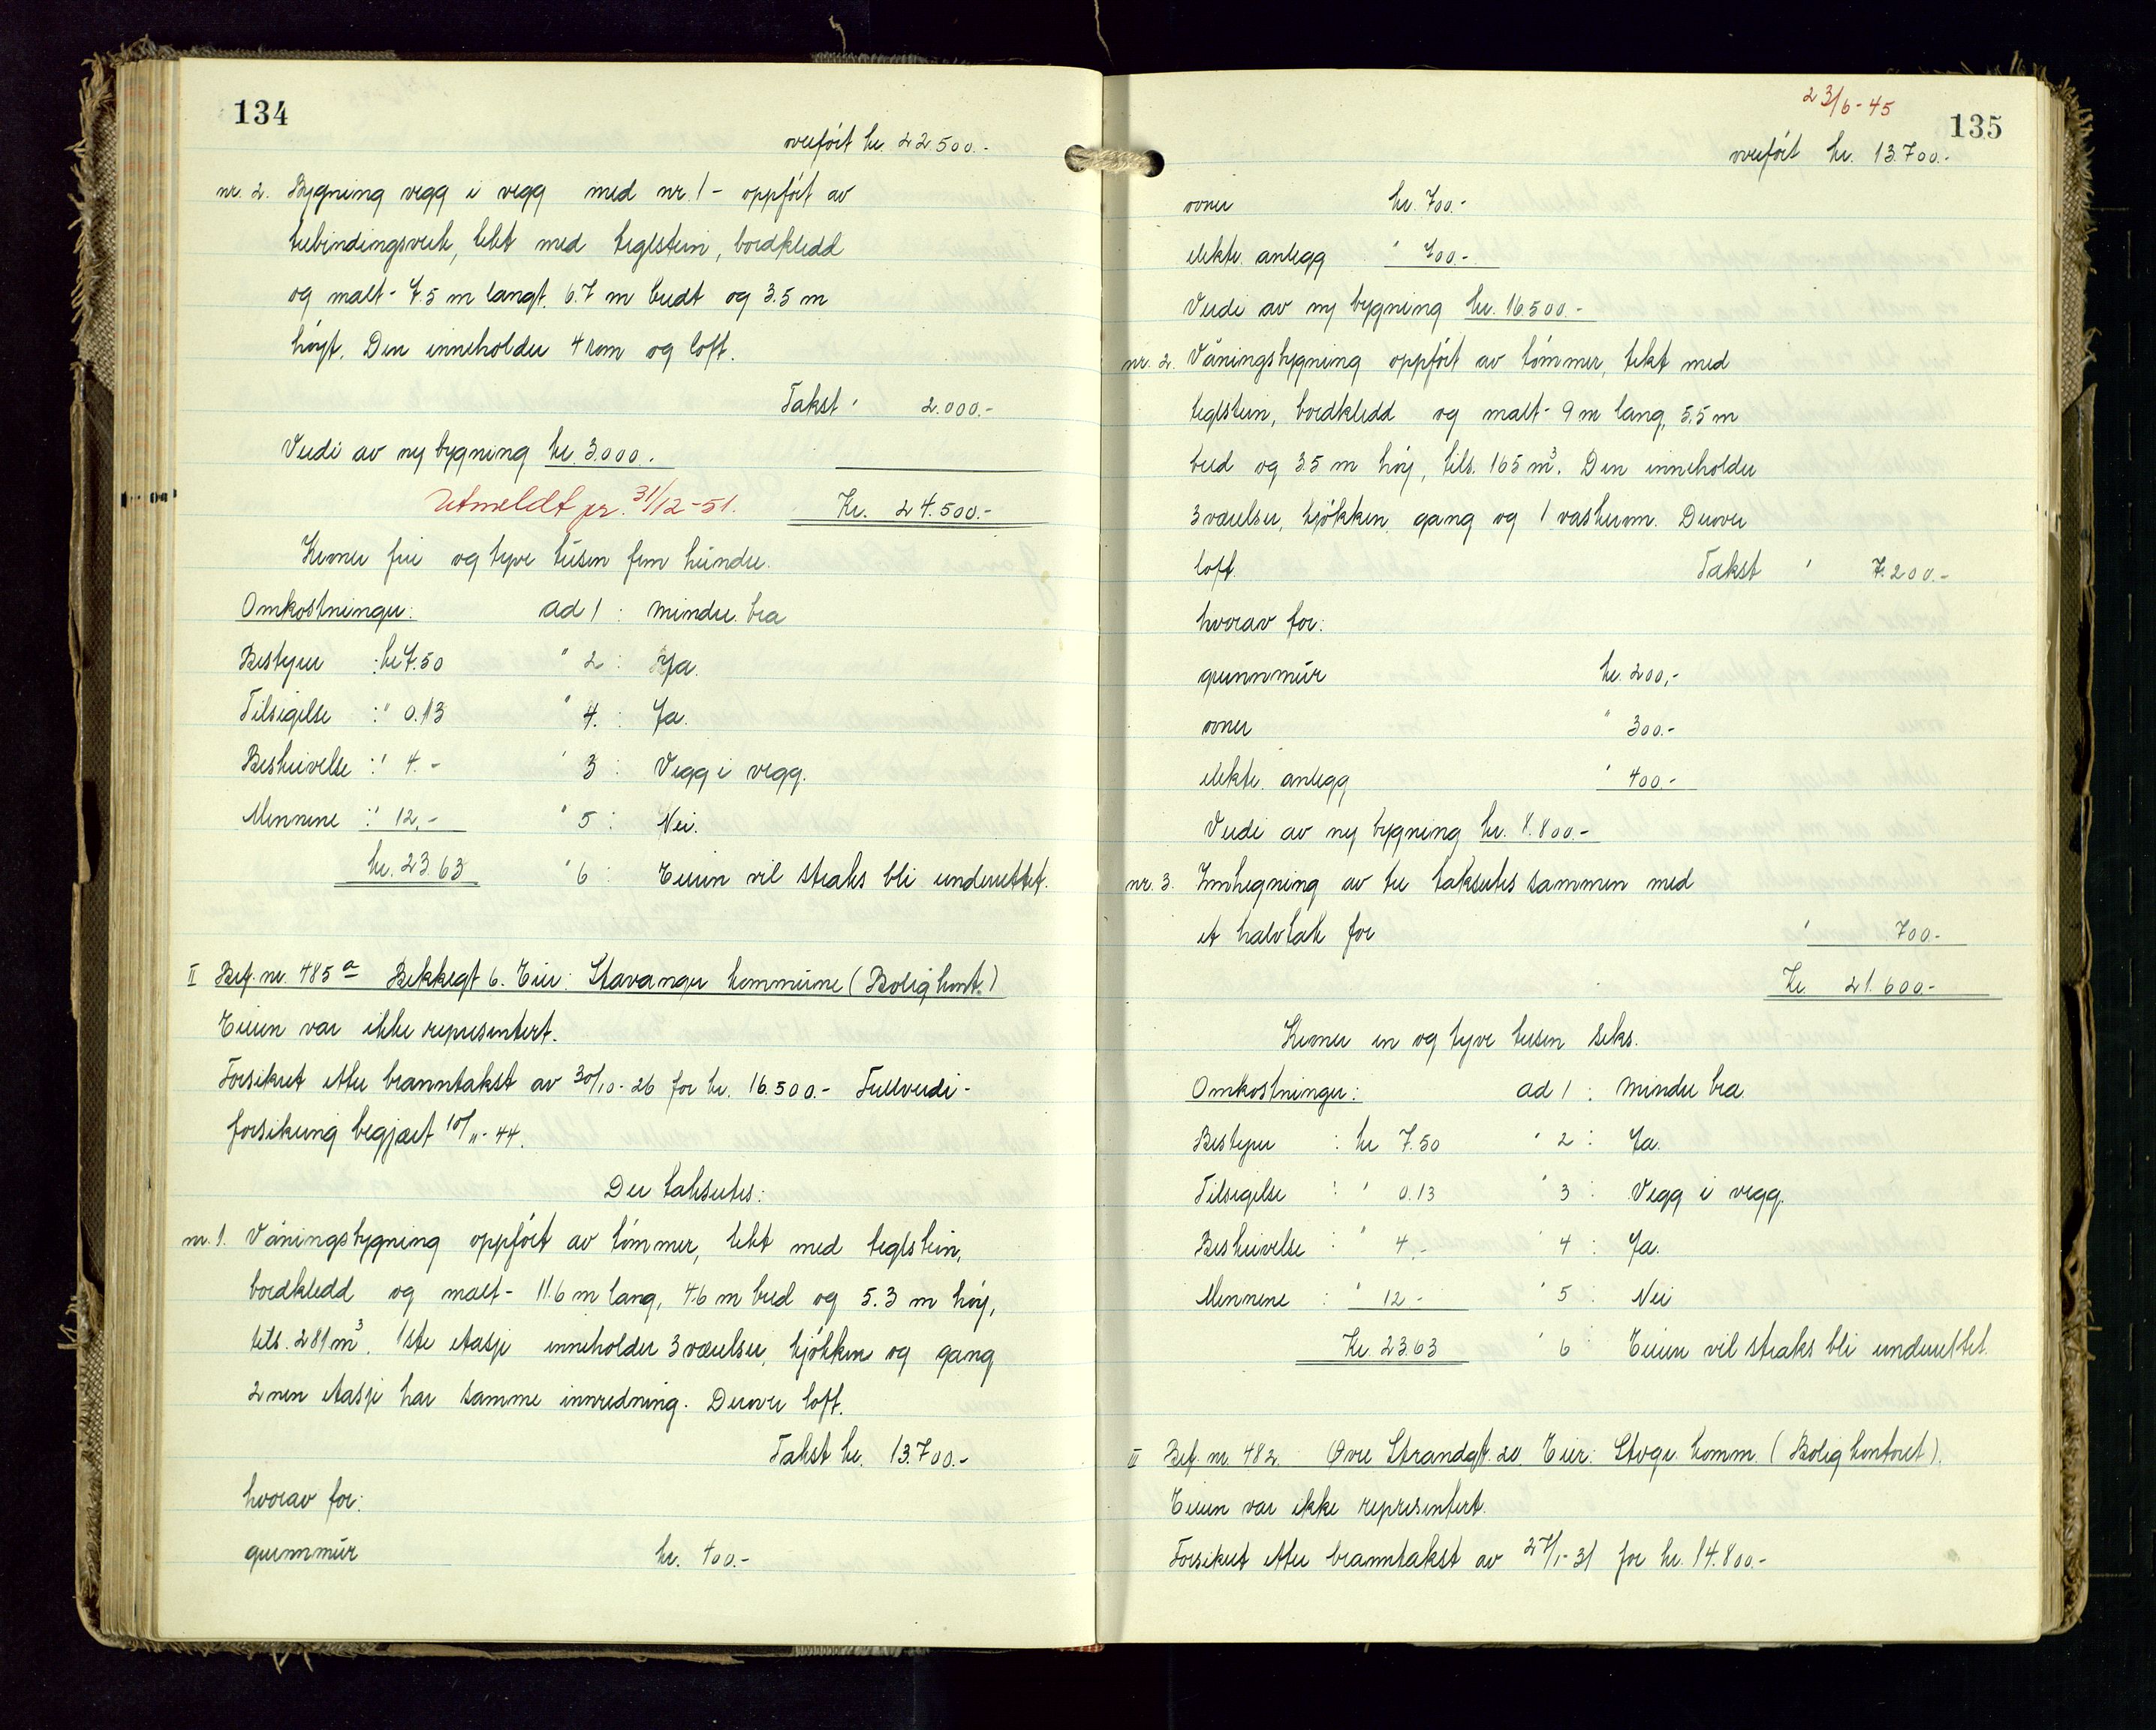 134
overført kr. 22.500.-
nr. 2. Bygning vegg i vegg med nr. 1 - oppført av
trebindingsverk, tekt med teglstein, bordkledd
og malt - 7.5 m langt. 6.7 m bredt og 3.5 m
høyt. Den inneholder 4 rom og loft.
Takst " 2.000.-
Verdi av ny bygning kr. 3.000.-
Utmeldt pr. 31/12-51. Kr. 24.500.-
Kroner fire og tyve tusen fem hundre.
Omkostninger: ad 1 : mindre bra
Bestyrer : kr 7.50 " 2 : Ja.
Tilsigelse : " 0.13 " 4. : Ja.
Beskrivelse : " 4.- " 3 : Vegg i vegg.
Mennene : " 12.- " 5 : Nei.
kr. 23.63 " 6 : Eieren vil straks bli underrettet.
II Bef. nr. 485 a Bekkegt 6. Eier: Stavanger kommune (Boligkont.)
Eieren var ikke representert.
Forsikret etter branntakst av 30/10-26 for kr. 16.500.- Fullverdi-
forsikring begjært 10/11-44.
Der takseres:
nr. 1. Våningsbygning oppført av tømmer, tekt med teglstein,
bordkledd og malt - 11.6 m lang, 4.6 m bred og 5.3 m høy,
tils. 281 m³. 1ste etasje inneholder 3 værelser, kjøkken og gang
2nen etasje har samme innredning. Derover loft.
Takst kr. 13.700.-
hvorav for:
grunnmur kr. 400.-
23/6-45
135
overført kr. 13.700.-
ovner kr. 700.-
elektr. anlegg " 700.-
Verdi av ny bygning kr. 16.500.-
nr. 2. Våningsbygning oppført av tømmer, tekt med
teglstein, bordkledd og malt - 9 m lang, 5,5 m
bred og 3.5 m høy, tils. 165 m³. Den inneholder
3 værelser, kjøkken, gang og 1 vaskerom. Derover
loft. Takst " 7.200.-
hvorav for:
grunnmur kr. 200,-
ovner " 300.-
elektr. anlegg " 400.-
Verdi av ny bygning kr. 8.800.-
nr. 3. Innhegning av tre takseres sammen med
et halvtak for " 700.-
Kr. 21.600.-
Kroner en og tyve tusen seks.
Omkostninger: ad 1 : mindre bra.
Bestyrer : kr 7.50 " 2 : Ja.
Tilsigelse : " 0.13 " 3 : Vegg i vegg.
Beskrivelse : " 4.- " 4 : Ja.
Mennene : " 12.- " 5 : Nei
Kr. 23.63 " 6 : Eieren vil straks bli underrettet.
II Bef. nr. 482. Øvre Strandgt. 20. Eier: Stvgr. komm. (Boligkontoret).
Eieren var ikke representert.
Forsikret etter branntakst av 27/1-31 for kr. 14.800.-